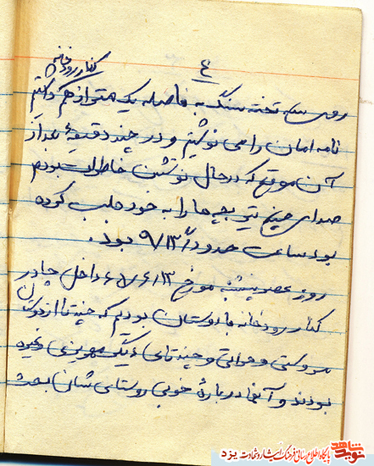 ٤
کنار رودخانه
روی سه تخته سنگ به فاصله یک متر از هم داشتم
نامه امان را می نوشتیم و در چند دقیقه بعد از
آن موقع که در حال نوشتن خاطرات بودم
صدای چند تیر بچه ها را به خود جلب کرده
بود ساعت حدوداً ۹/۱۳ بود.
روز عصر پنجشنبه مورخ ۶۵/۶/۱۳ داخل چادر
کنار رودخانه ما دوستان بودیم که چند تا از دوستان
مروستی و هراتی و چند تای دیگر مهریزی و غیره
بودند و آنها درباره خوبی روستای شان بحث
نوید شاهد
پایگاه اطلاع رسانی فرهنگ ایثار و شهادت یزد